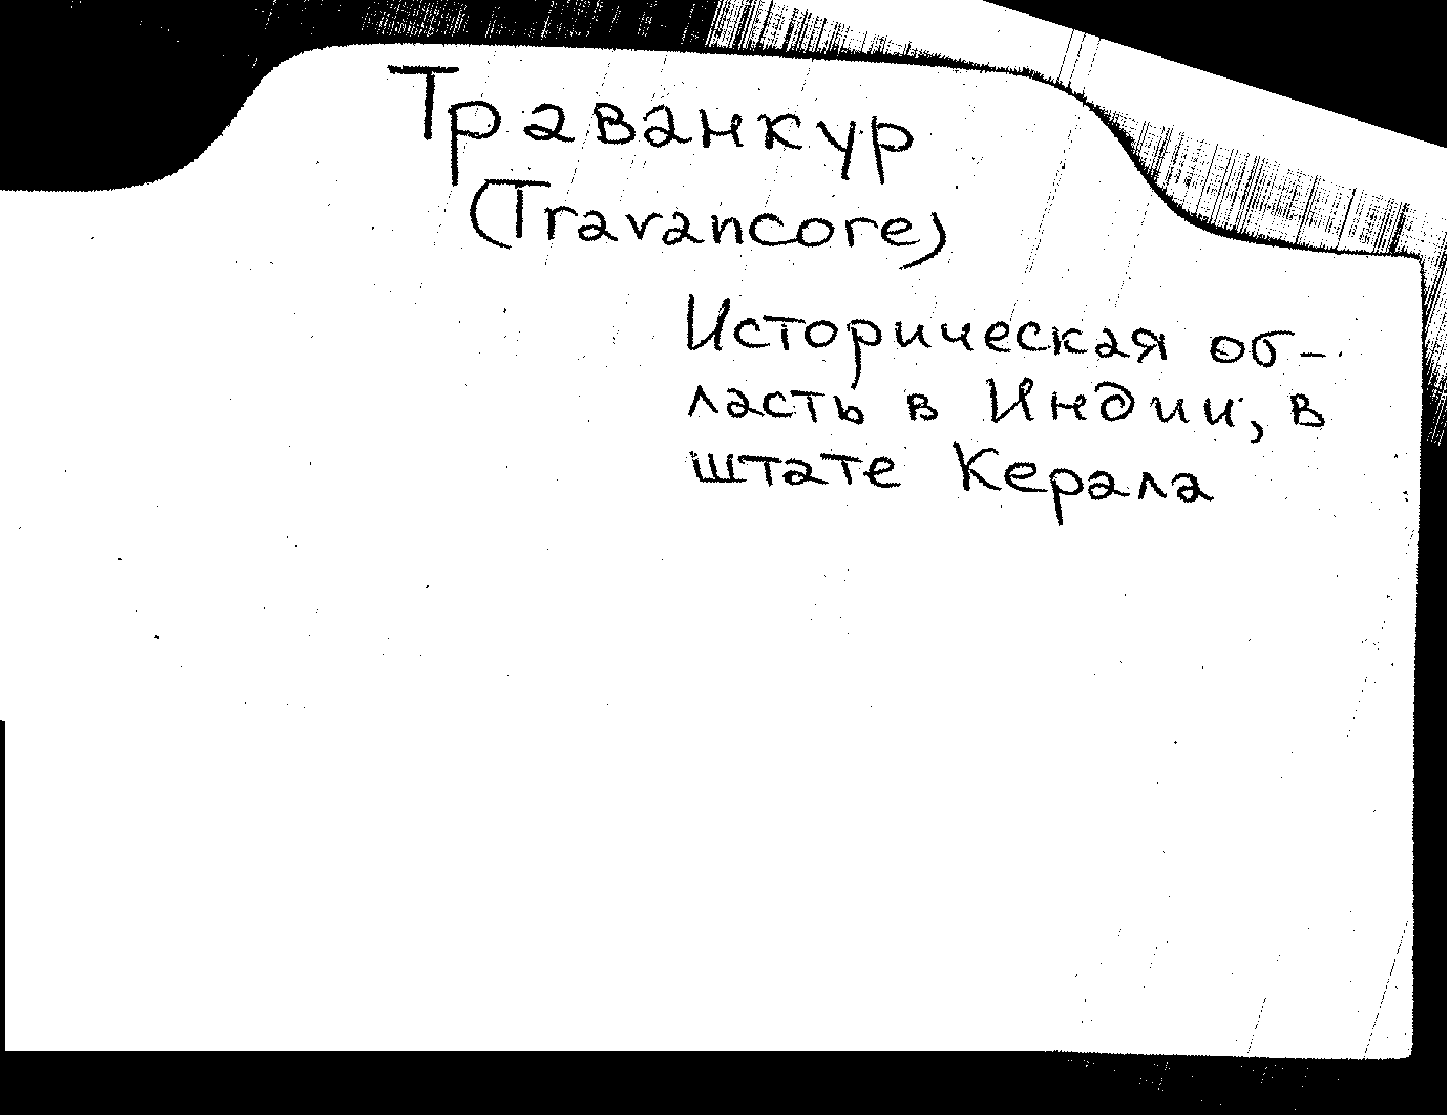 Траванкур
(Travancore)
Историческая об-
ласть в Индии, в
штате Керала